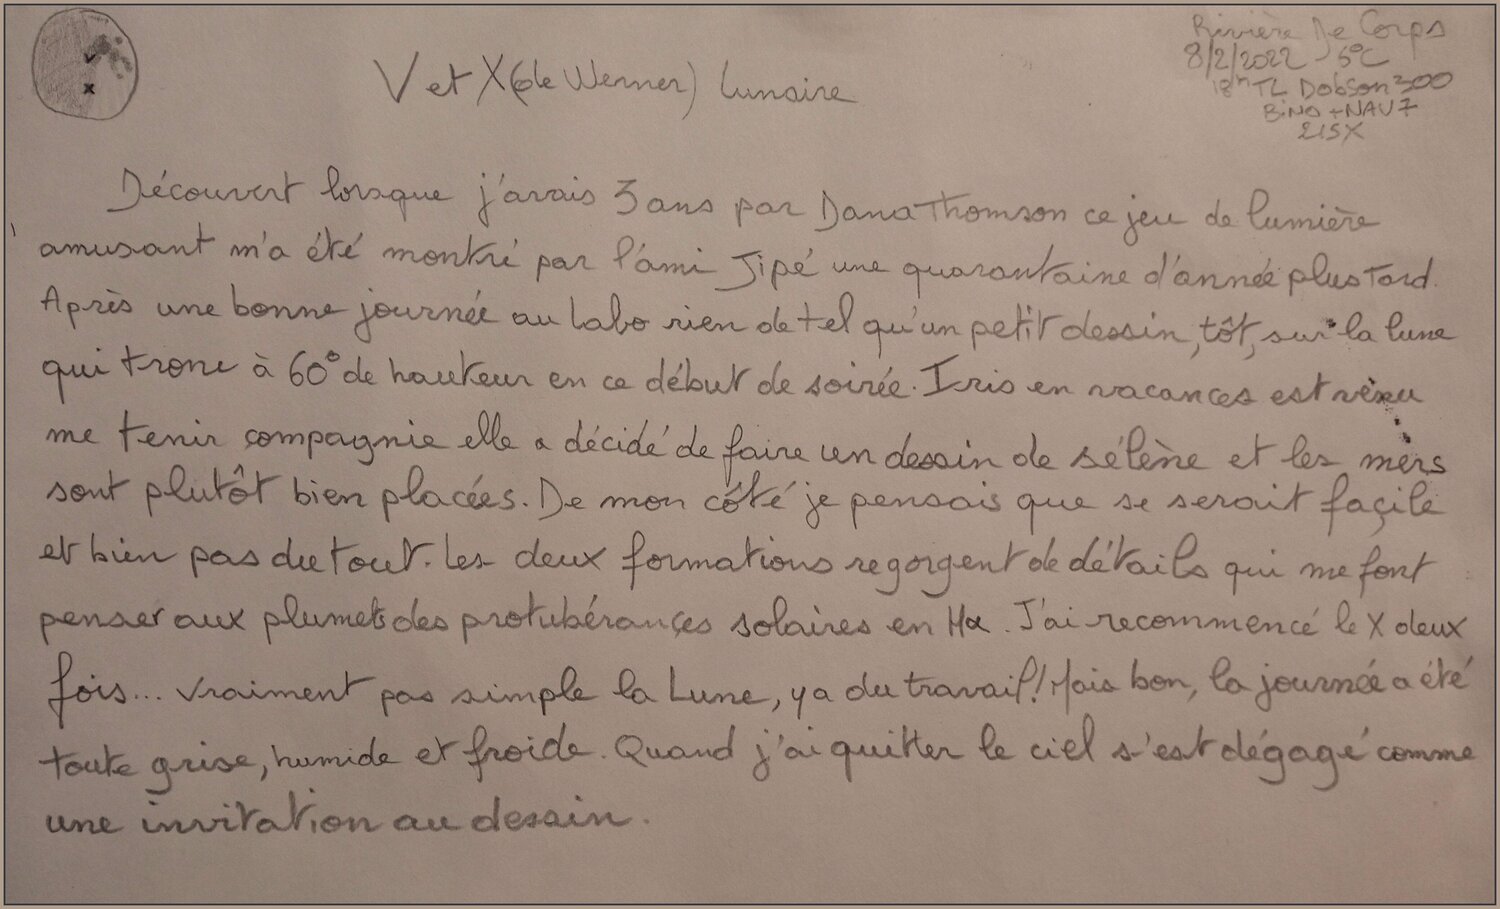 V
X
Rivière De Corps
8/2/2022 5°C
18h TL Dobson 300
Bino + NAV7
215X
V et X (de Werner) lunaire
Découvert lorsque j'avais 3 ans par Dana Thomson ce jeu de lumière
amusant m'a été montré par l'ami Jipé une quarantaine d'année plus tard.
Après une bonne journée au labo rien de tel qu'un petit dessin, tôt, sur la lune
qui trone à 60° de hauteur en ce début de soirée. Iris en vacances est venu
me tenir compagnie elle a décidé de faire un dessin de sélène et les mers
sont plutôt bien placées. De mon côté je pensais que se serait façile
et bien pas du tout. Les deux formations regorgent de détails qui me font
penser aux plumets des protubérançes solaires en Hα. J'ai recommencé le X deux
fois... vraiment pas simple la Lune, ya du travail! Mais bon, la journée a été
toute grise, humide et froide. Quand j'ai quitter le ciel s'est dégagé comme
une invitation au dessin.